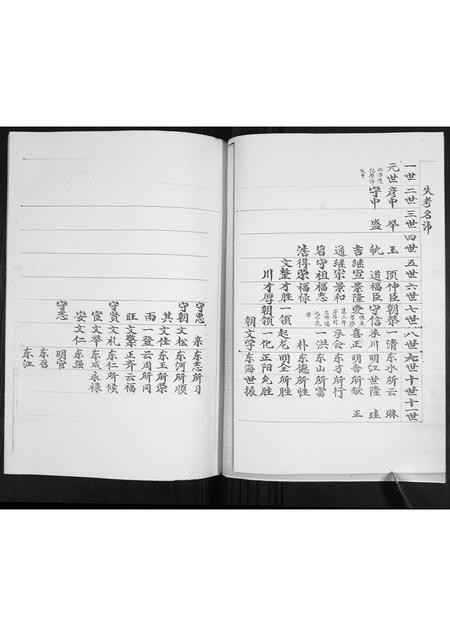 失考名讳
一世 二世 三世 四世 五世 六世 七世 八世 九世 十世 十一世
元世 彦申 举 玉 项 仲臣 朝荣 一清 东永 所云 琳
守申 盛 钪 道 福臣 守信 承川 明江 世隆 珪
吉 继宣 景隆 爱 喜正 明吾 所献 正
通 继宗 景和 承会 东才 所行
岩 守祖 福忠 一洪 东山 所富
浩 得荣 福禄 朴 东德 所性
文整 才胜 一领 起龙 明全 所胜
川 才厚 朝领 一化 正阳 免胜
朝 文学 东海 世振
守忠 亲 东志 所习
守朝 文松 东河 所顺
其 文仕 东玉 所荣
雨 一登 云周 所同
旺 文擎 正齐 云福
守贤 文礼 东仁 所侯
宦 文举 东成 永禄
安 文仁 东强
守志 明管
东召
东江